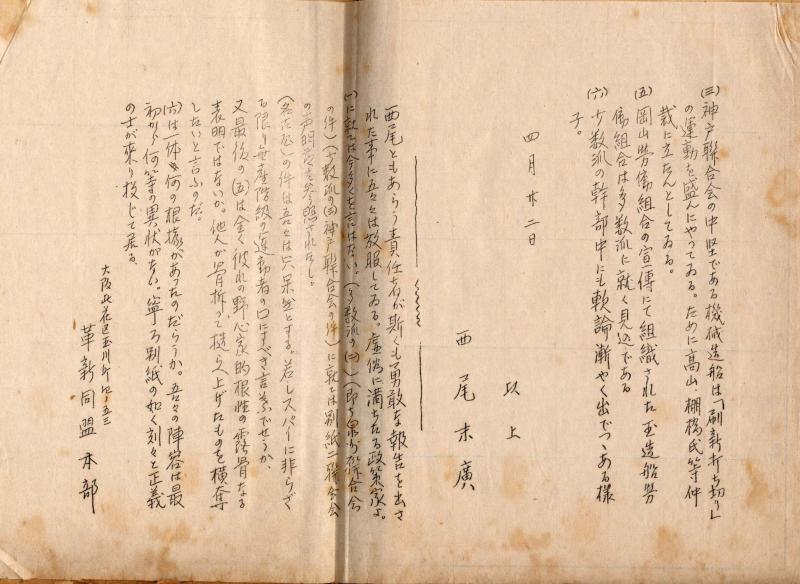 (三)神戸聯合会の中堅である機械造船は「刷新打ち切り」
の運動を盛んにやつてゐる。ために高山、棚橋氏等仲
裁に立たんとしてゐる。
(五)岡山労働組合の宣傳にて組織された玉造船労
働組合は多数派に就く見込である
(六)少数派の幹部中にも軟論漸やく出でつゝある様
子。
四月廿二日
以上
西尾末廣
西尾ともあらう責任者が斯くも勇敢な報告を出さ
れた事に吾々は敬服してゐる。虚偽に満ちたる政策家よ。
(一)に就ては今多くを言はない。(多数派の(二))(即ち泉州聯合会
の件)(少数派の(三)神戸聯合会の件)に就ては別紙二聯合会
の声明書を参照されたし。
の件は吾々は只呆然とする。若しスパイに非らざ
る限り無産階級の運動者の口にすべき言葉でせうか、
又最後の(五)は全く彼れの野心家的根性の露骨なる
表明ではないか。他人が骨折つて拵ら上げたものを横奪
したいと言ふのだ。
(六)は一体何の根拠があつたのだらうか。吾々の陣容は最
初から何等の異状がない。寧ろ別紙の如く刻々と正義
の士が来り投じて居る、
大阪此花区玉川町
革新同盟本部